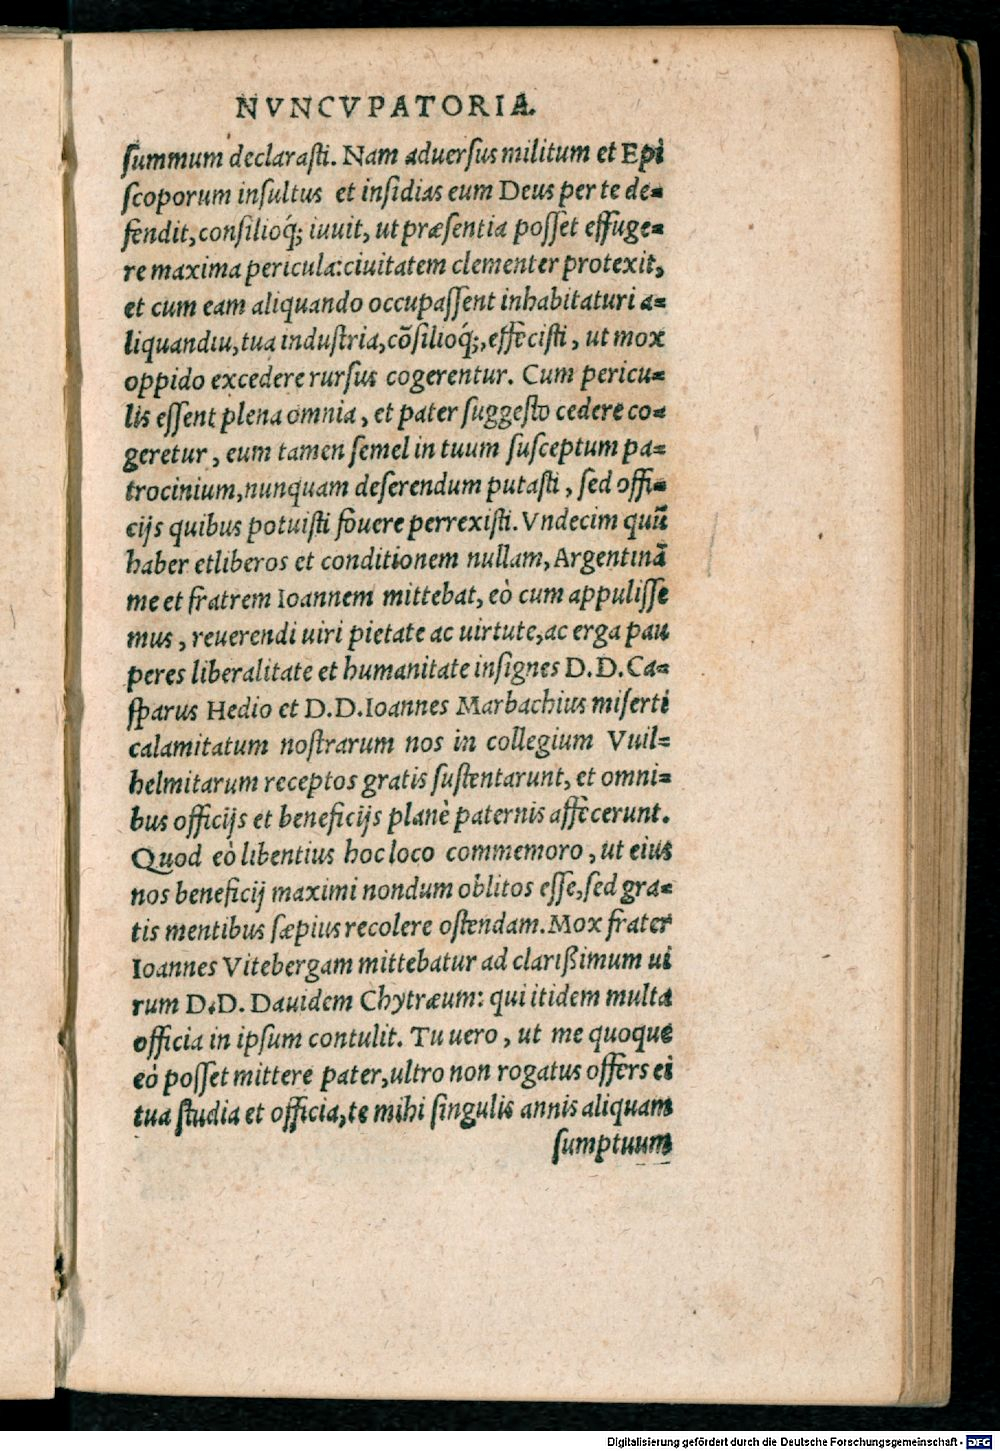 NVNCVPATORIA.
ſummum declaraſti. Nam aduerſus militum et Epi
ſcoporum inſultus et inſidias eum Deus per te de=
fendit, conſilioq́; iuuit, ut præſentia poſſet effuge=
re maxima pericula: ciuitatem clementer protexit,
et cum eam aliquando occupaſſent inhabitaturi a=
liquandiu, tua induſtria, cõſilioq́;, effeciſti, ut mox
oppido excedere rurſus cogerentur. Cum pericu=
lis eſſent plena omnia, et pater ſuggeſto cedere co=
geretur, eum tamen ſemel in tuum ſuſceptum pa=
trocinium, nunquam deſerendum putaſti, ſed offi=
cijs quibus potuiſti fouere perrexiſti. Vndecim quũ
haber et liberos et conditionem nullam, Argentinã
me et fratrem Ioannem mittebat, eò cum appuliſſe
mus, reuerendi uiri pietate ac uirtute, ac erga pau
peres liberalitate et humanitate inſignes D.D. Ca=
ſparus Hedio et D.D. Ioannes Marbachius miſerti
calamitatum noſtrarum nos in collegium Vuil=
helmitarum receptos gratis ſuſtentarunt, et omni=
bus officijs et beneficijs planè paternis affecerunt.
Quod eò libentius hoc loco commemoro, ut eius
nos beneficij maximi nondum oblitos eſſe, ſed gra=
tis mentibus ſæpius recolere oſtendam. Mox frater
Ioannes Vitebergam mittebatur ad clarißimum ui
rum D.D. Dauidem Chytræum: qui itidem multa
officia in ipſum contulit. Tu uero, ut me quoque
eò poſſet mittere pater, ultro non rogatus offers ei
tua ſtudia et officia, te mihi ſingulis annis aliquam
ſumptuum
Digitalisierung gefördert durch die Deutsche Forschungsgemeinschaft - DFG